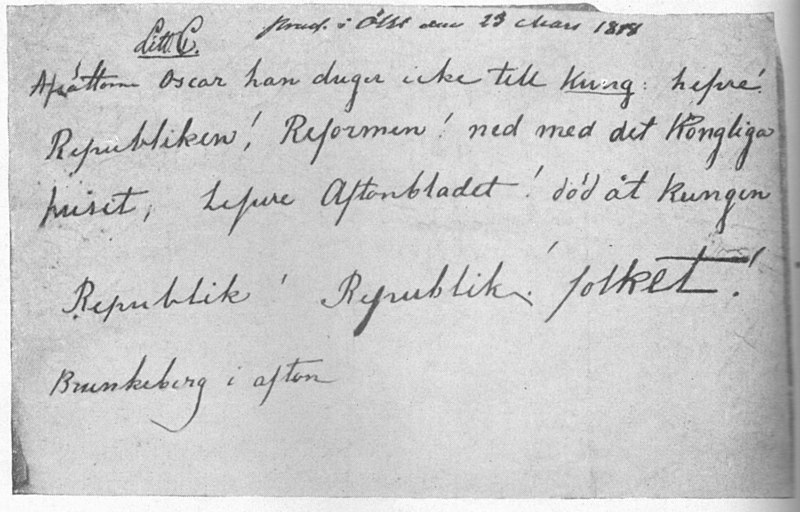 Litt. C.
Prod. i ÖStS den 23 Mars 1848
Afsättom Oscar han duger icke till Kung: lefve!
Republiken! Reformen! ned med det Kongliga
huset, lefve Aftonbladet! död åt kungen
Republik! Republik! folket!
Brunkeberg i afton